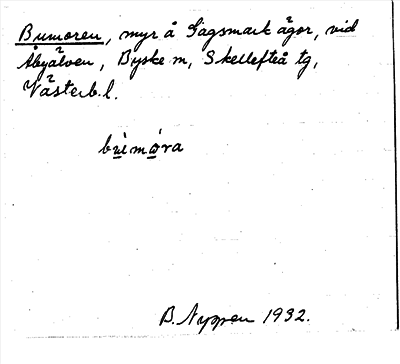 Bumoren, myr å Sågsmark ägor, vid
Åbyälven, Byske sn, Skellefteå tg,
Västerb. l.
bùmóra
B. Nyppen 1932.